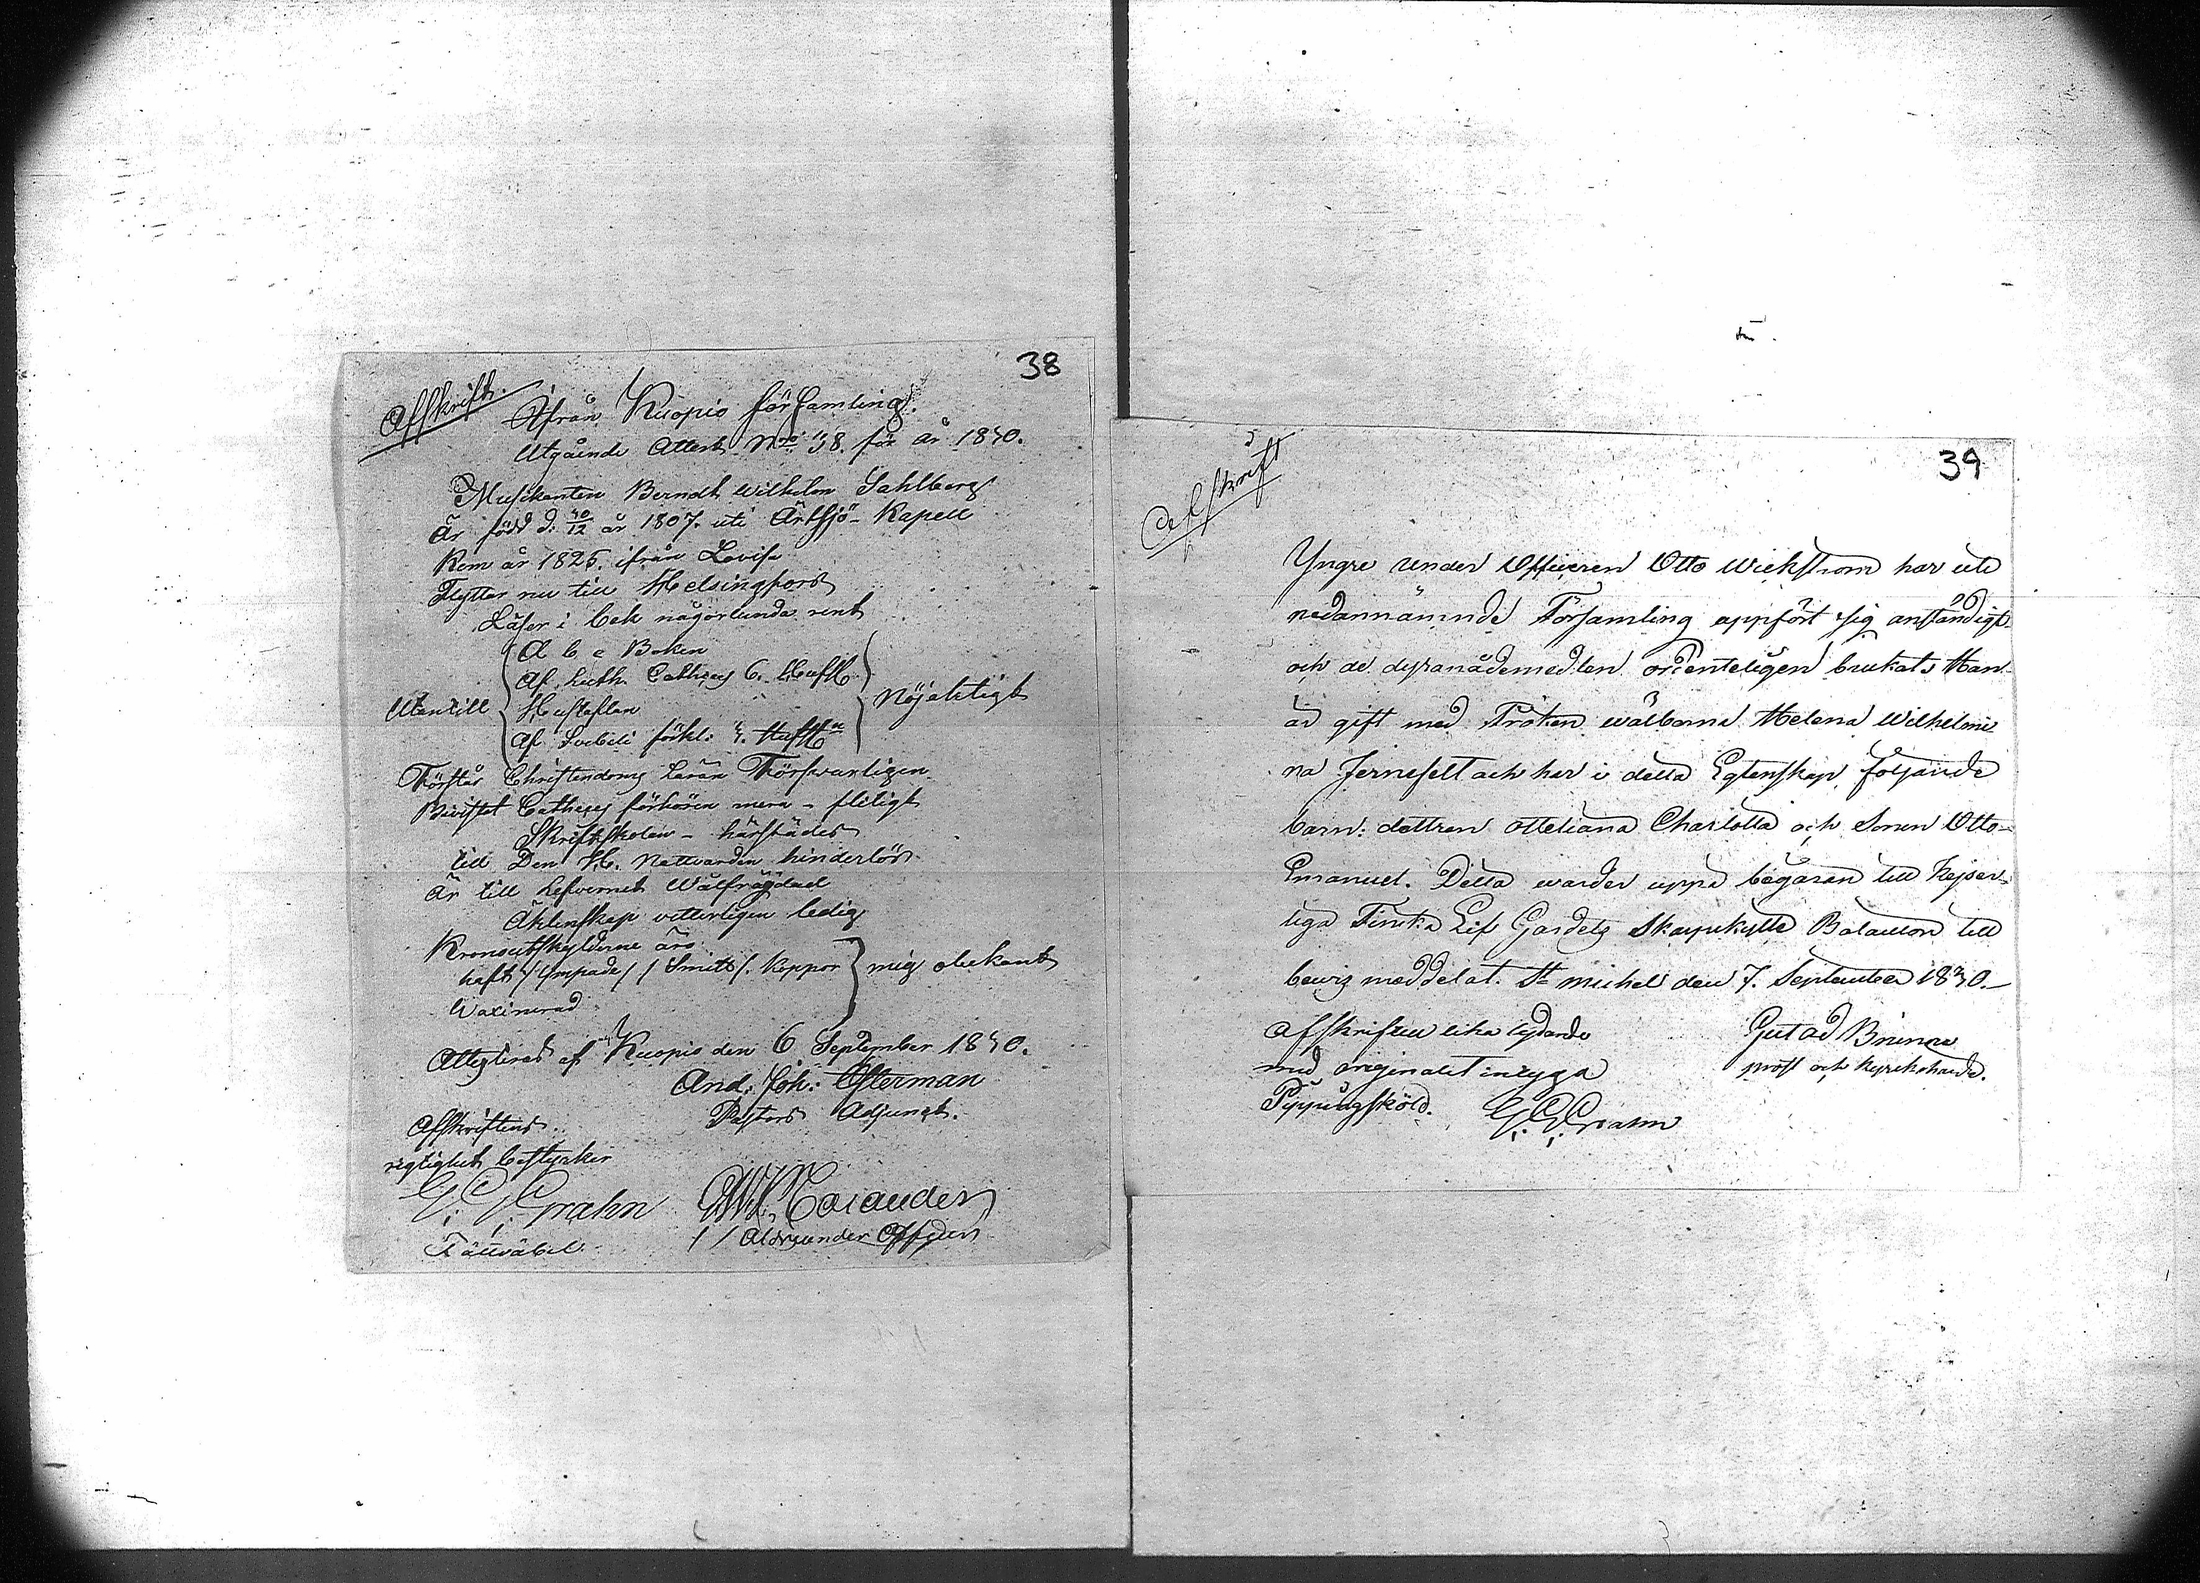 38
Afskrift.
Ifrån Kuopio församling.
Utgående Attest Nro 38. för år 1830.
Musikanten Berndt Wilhelm Sahlberg
Är född d. 30/12 år 1807. uti Ärtsjö- Kapell
Kom år 1825. ifrån Lovisa
Flyttar nu till Helsingfors
Läser i bok någorlunda rent
A b c Boken
Af Luth. Catheces 6. Hufst
Utantill Hustaflan Nöjaktigt
Af Svebeli förkl: 3. Hufst
Förstår Christendoms Läran Försvarligen
Bivistat Catheces förhören mera - flitigt
Skriftskolan - härstädes
till Den H. Nattvarden hinderlös
Är till Lefvernet Wälfrägdad
Äktenskap vitterligen ledig
Kronoutskylderne äro
haft /ympade/ / Smitt/. Koppor mig obekant
Waxinerad
Attesteras af Kuopio den 6 September 1830.
And: Joh: Österman
Pastors Adjungt.
Afskriftens
rigtighet bestyrker
G. G. Grahn
Fältväbel
Äldre under Officer
39
Afskrift
Yngre Under Officeren Otto Wickstrom har uti
nedannämnde Församling uppfört sig anständigt
och de dyranådemedlen ordenteligen brukat Han
är gift med Fröken wälborna Helena Wilhelmi-
na Jernefelt och har i detta Egtenskap följande
barn: dottren Otteliana Charlotta och Sonen Otto
Emanuel. Detta warder uppå begäran till Kejser-
liga Finska Lif Gardets Skarpskytte Bataillon till
bewis meddelat. St michel den 7. September 1830.
Afskriften lika lydande
med originalet intyga
Pippingsköld.
G. G. Grahn
prost och Kyrkoherde.